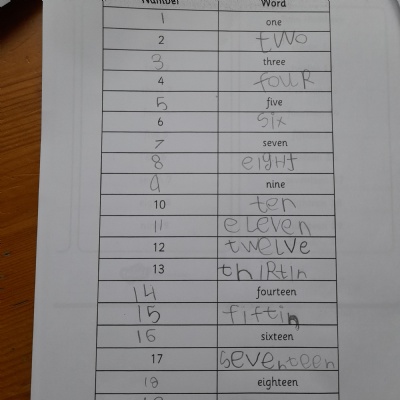 Number Word
1 one
2 two
3 three
4 fouR
5 five
6 six
7 seven
8 eigHt
9 nine
10 ten
11 eLeven
12 tweLVe
13 thiRtin
14 fourteen
15 fiftin
16 sixteen
17 seventeen
18 eighteen